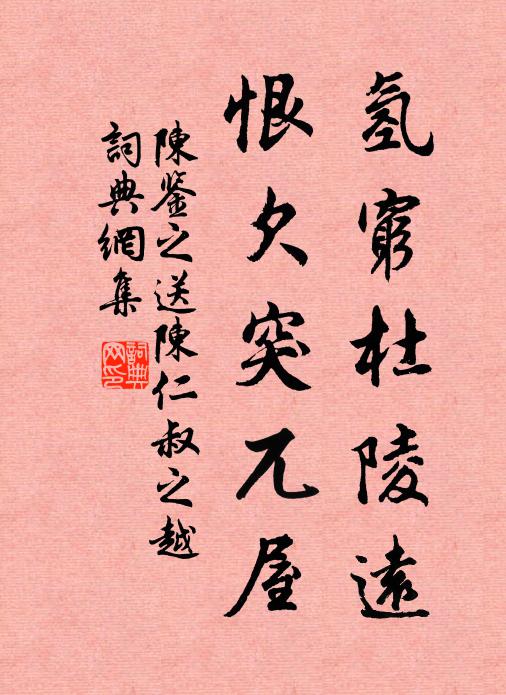 氢窮杜陵遠
恨欠突兀屋
陳鉴之送陳仁叔之越
詞典網集
詞典网印